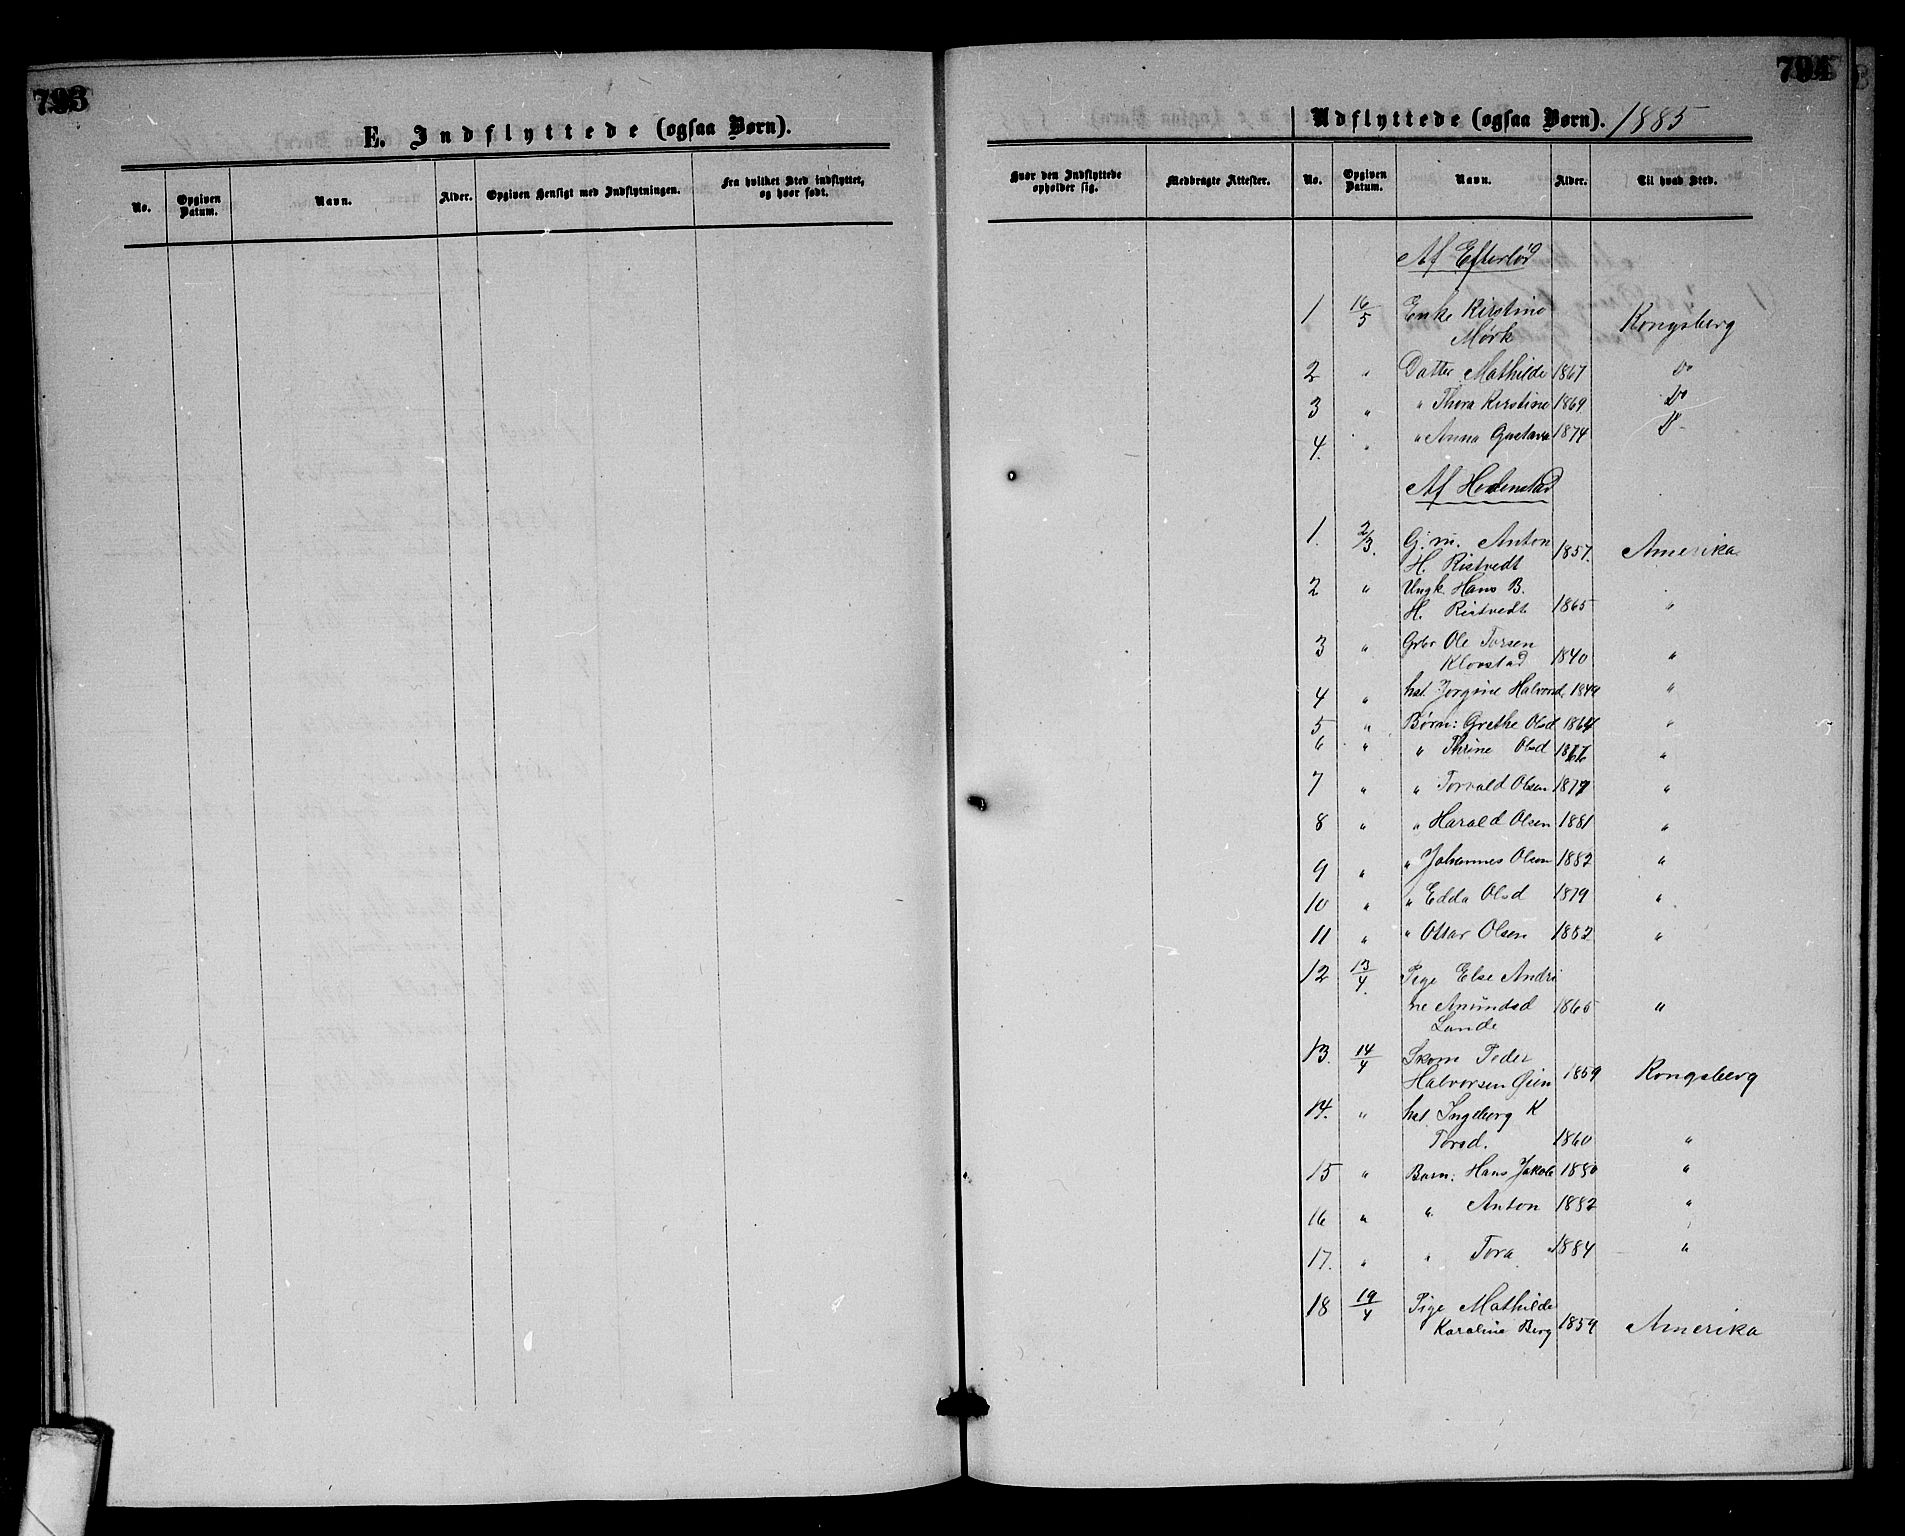 793
E. Indflyttede (ogsaa Børn).
No.
Opgiven Datum.
Navn.
Alder.
Opgiven Hensigt med Indflytningen.
Fra hvilket Sted indflyttet, og hvor født.
794
Udflyttede (ogsaa Børn). 1885
Hvor den Indflyttede opholder sig.
Medbragte Attester.
No.
Opgiven Datum.
Navn.
Alder.
Til hvad Sted.
Af Efterlød
1 16/5 Enke Kirstine
Mørk Kongsberg
2 " Datter Mathilde 1867 Do
3 " " Thora Kirstine 1869 Do
4. " " Anna Gustava 1874 Do
Af Hedenstad
1. 2/3. Gj. m. Anton
H. Ristvedt 1857. Amerika
2 " Ungk. Hans B.
H. Ristvedt 1865 "
3 " Grbr Ole Torsen
Klovstad 1840 "
4 " hst. Jorgine Halvorsd. 1849 "
5 " Børn: Grethe Olsd 1864 "
6 " " Thrine Olsd "
7 " " Torvald Olsen 1877 "
8 " " Harald Olsen 1881 "
9 " " Johannes Olsen 1882 "
10 " " Edda Olsd 1879 "
11 " " Ottar Olsen 1882 "
12 13/4. Pige Else Andri
ne Amundsd 1865 "
Lande
13. 14/4 Skom Peder
Halvorsen Øien 1859 Kongsberg
14. " hst. Ingeborg K
Torsd. 1860 "
15 " Barn: Hans Jakob 1880 "
16 " " Anton 1882 "
17. " " Tora 1884 "
18 19/4 Pige Mathilde
Karoline Berg 1859 Amerika